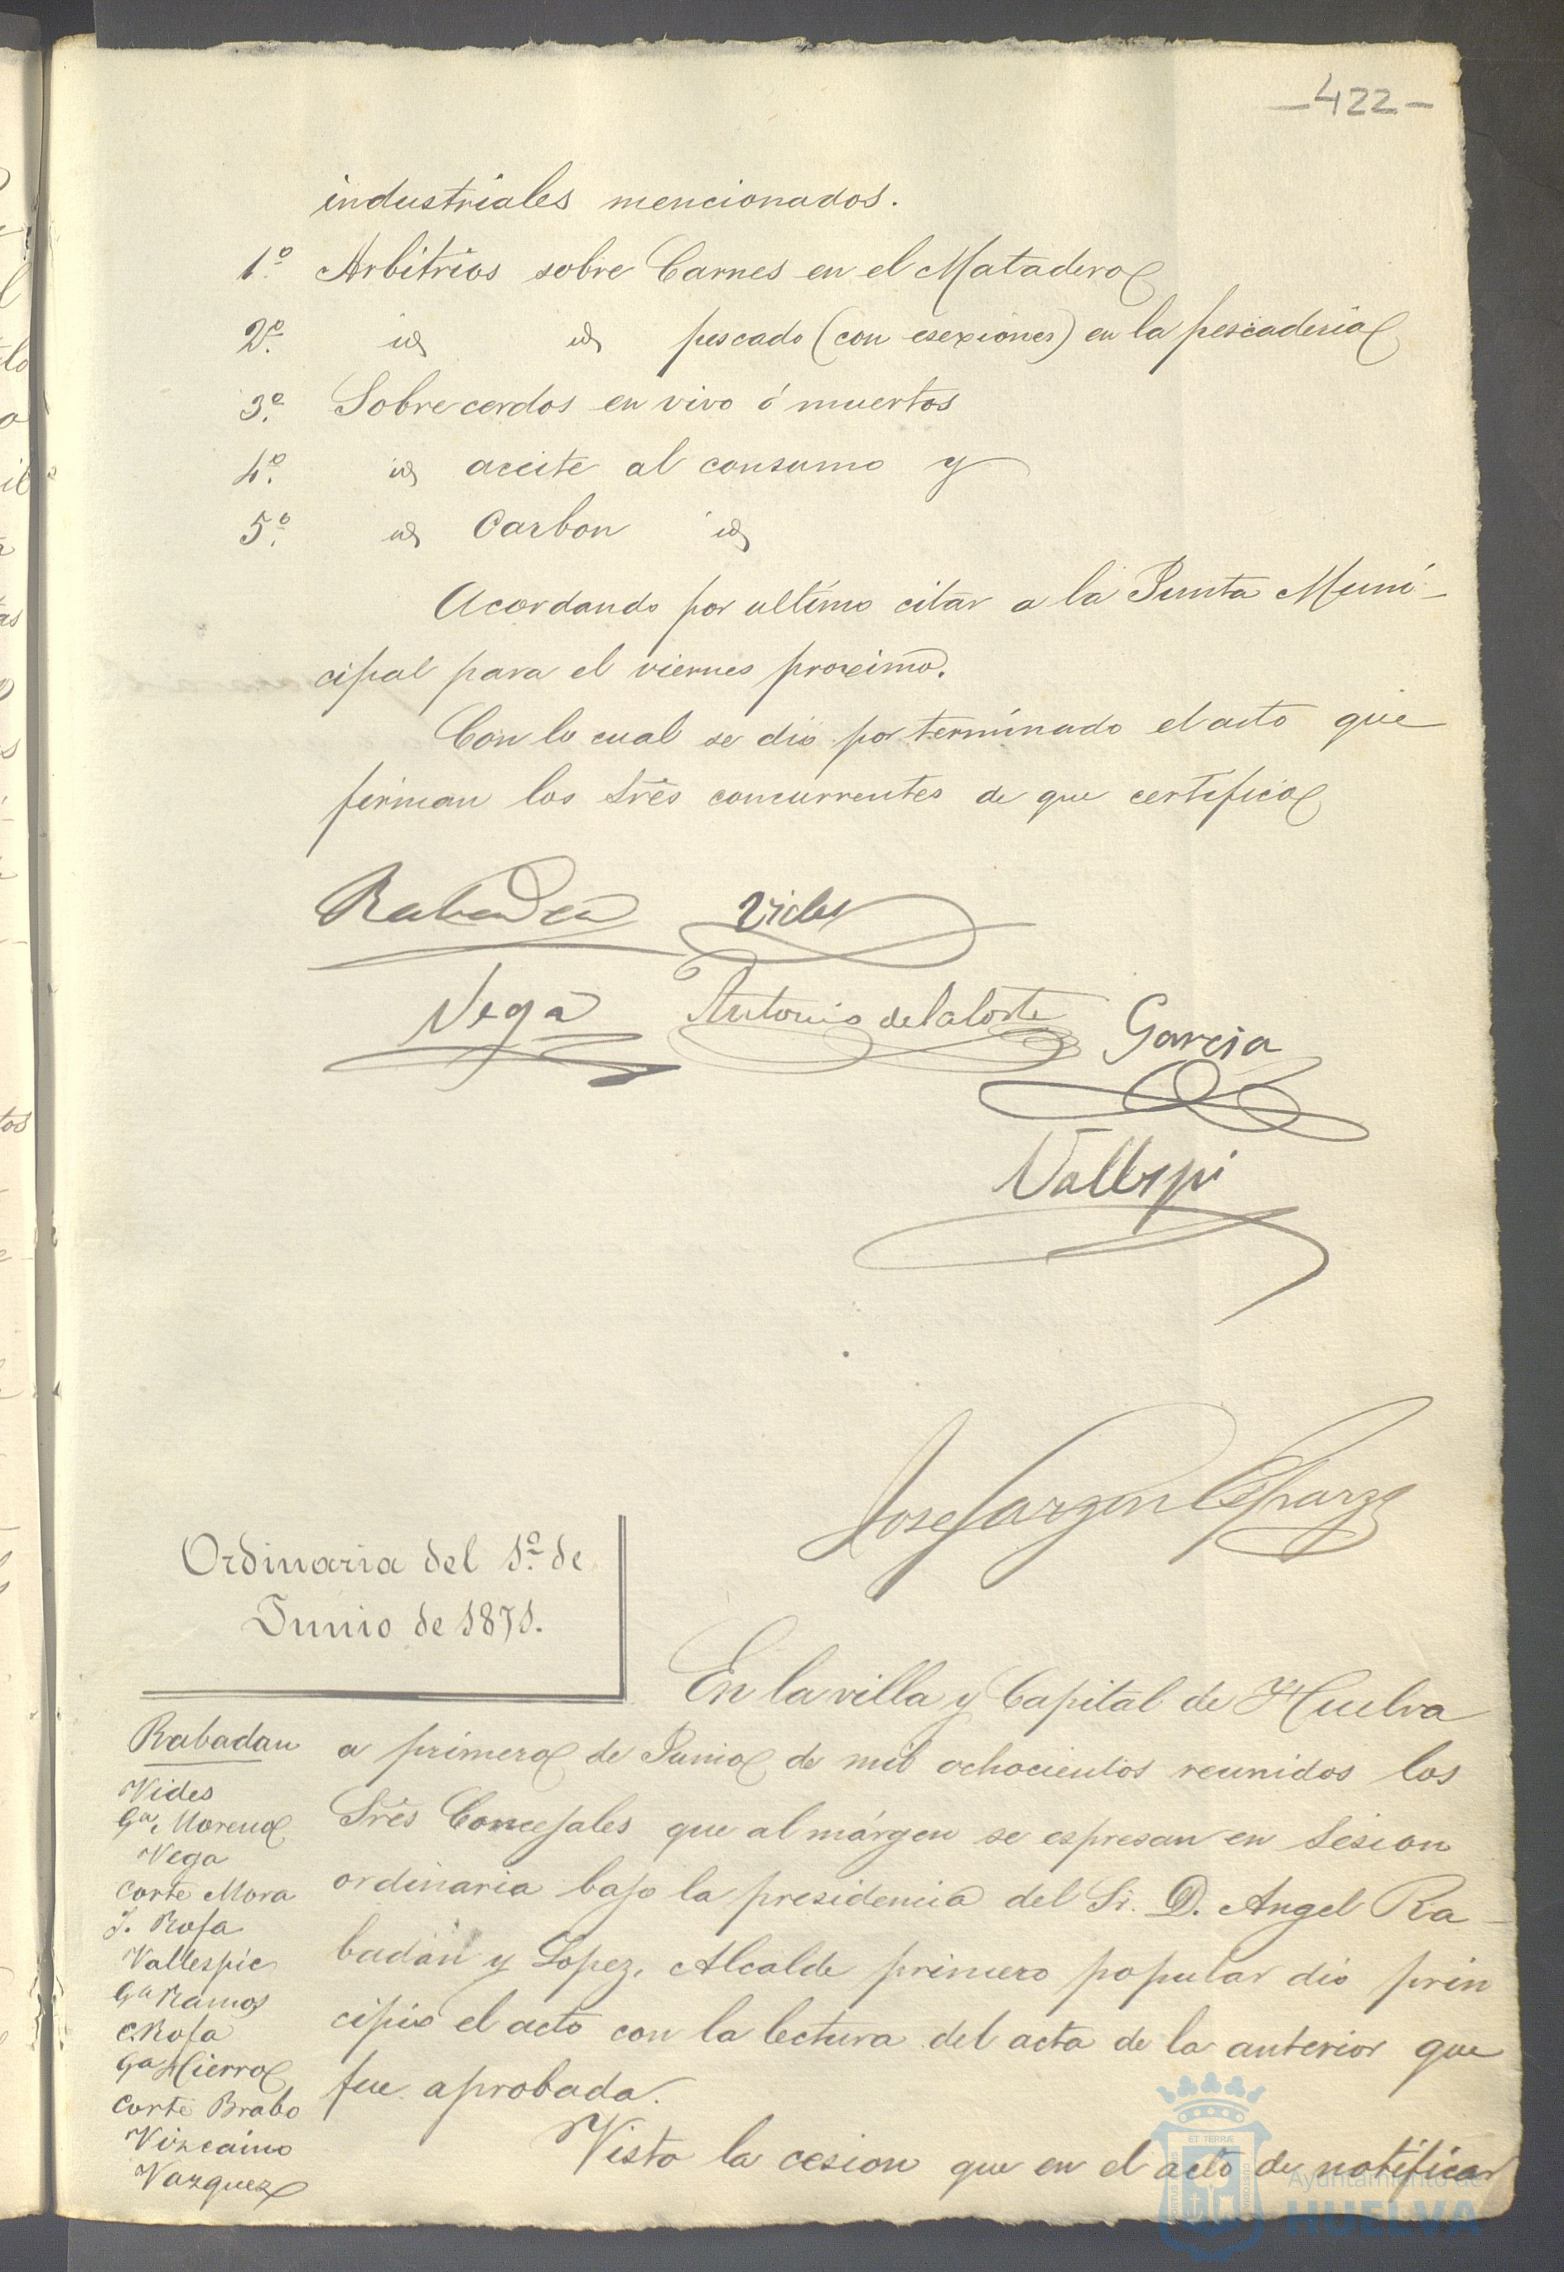 —422—
industriales mencionados.
1º Arbitrios sobre Carnes en el Matadero
2º. id id pescado (con esexiones) en la pescaderia
3º. Sobre cerdos en vivo ó muertos
4º. id aceite al consumo y
5º. id Carbon id
Acordando por ultimo citar a la Junta Muni-
cipal para el viernes proximo.
Con lo cual se dió por terminado el acto que
firman los Srēs concurrentes de que certifico
Rabadan Vides
Vega Antonio de la Corte Garcia
Vallespi
Jose Garzon Esparza
Ordinaria del 1º. de
Junio de 1871.
En la villa y Capital de Huelva
a primero de Junio de mil ochocientos reunidos los
Srēs Concejales que al márgen se espresan en Sesion
ordinaria bajo la presidencia del Sr. D. Angel Ra-
badán y Lopez, Alcalde primero popular dió prin
cipio el acto con la lectura del acta de la anterior que
fue aprobada.
Visto la cesion que en el acto de notificar
Rabadan
Vides
Gª. Moreno
Vega
Corte Mora
J. Rofa
Vallespie
Gª Ramos
C. Rofa
Gª Hierro
Corte Brabo
Vizcaino
Vazquez
ET TERRÆ
Ayuntamiento de
HUELVA